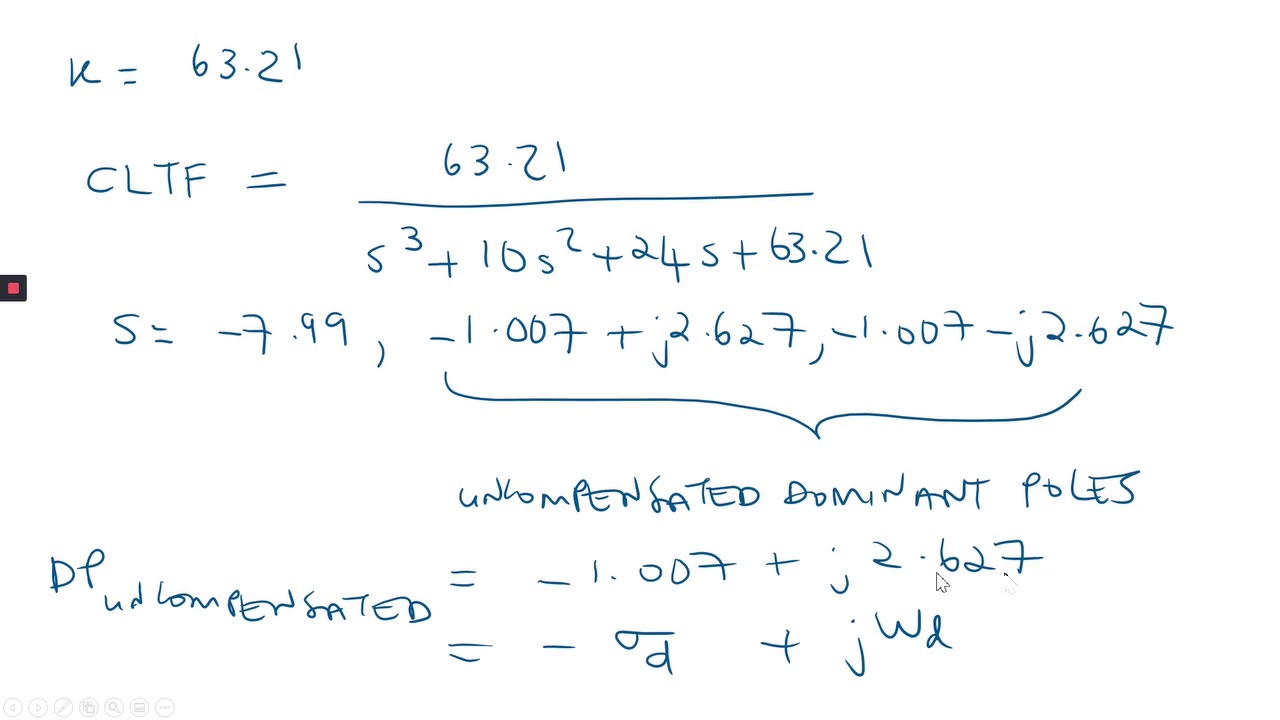 K = 63.21
CLTF = 63.21
s³ + 10s² + 24s + 63.21
S = -7.99, -1.007 + j2.627, -1.007 - j2.627
UNCOMPENSATED DOMINANT POLES
DP UNCOMPENSATED = -1.007 + j2.627
= - σd + jωd